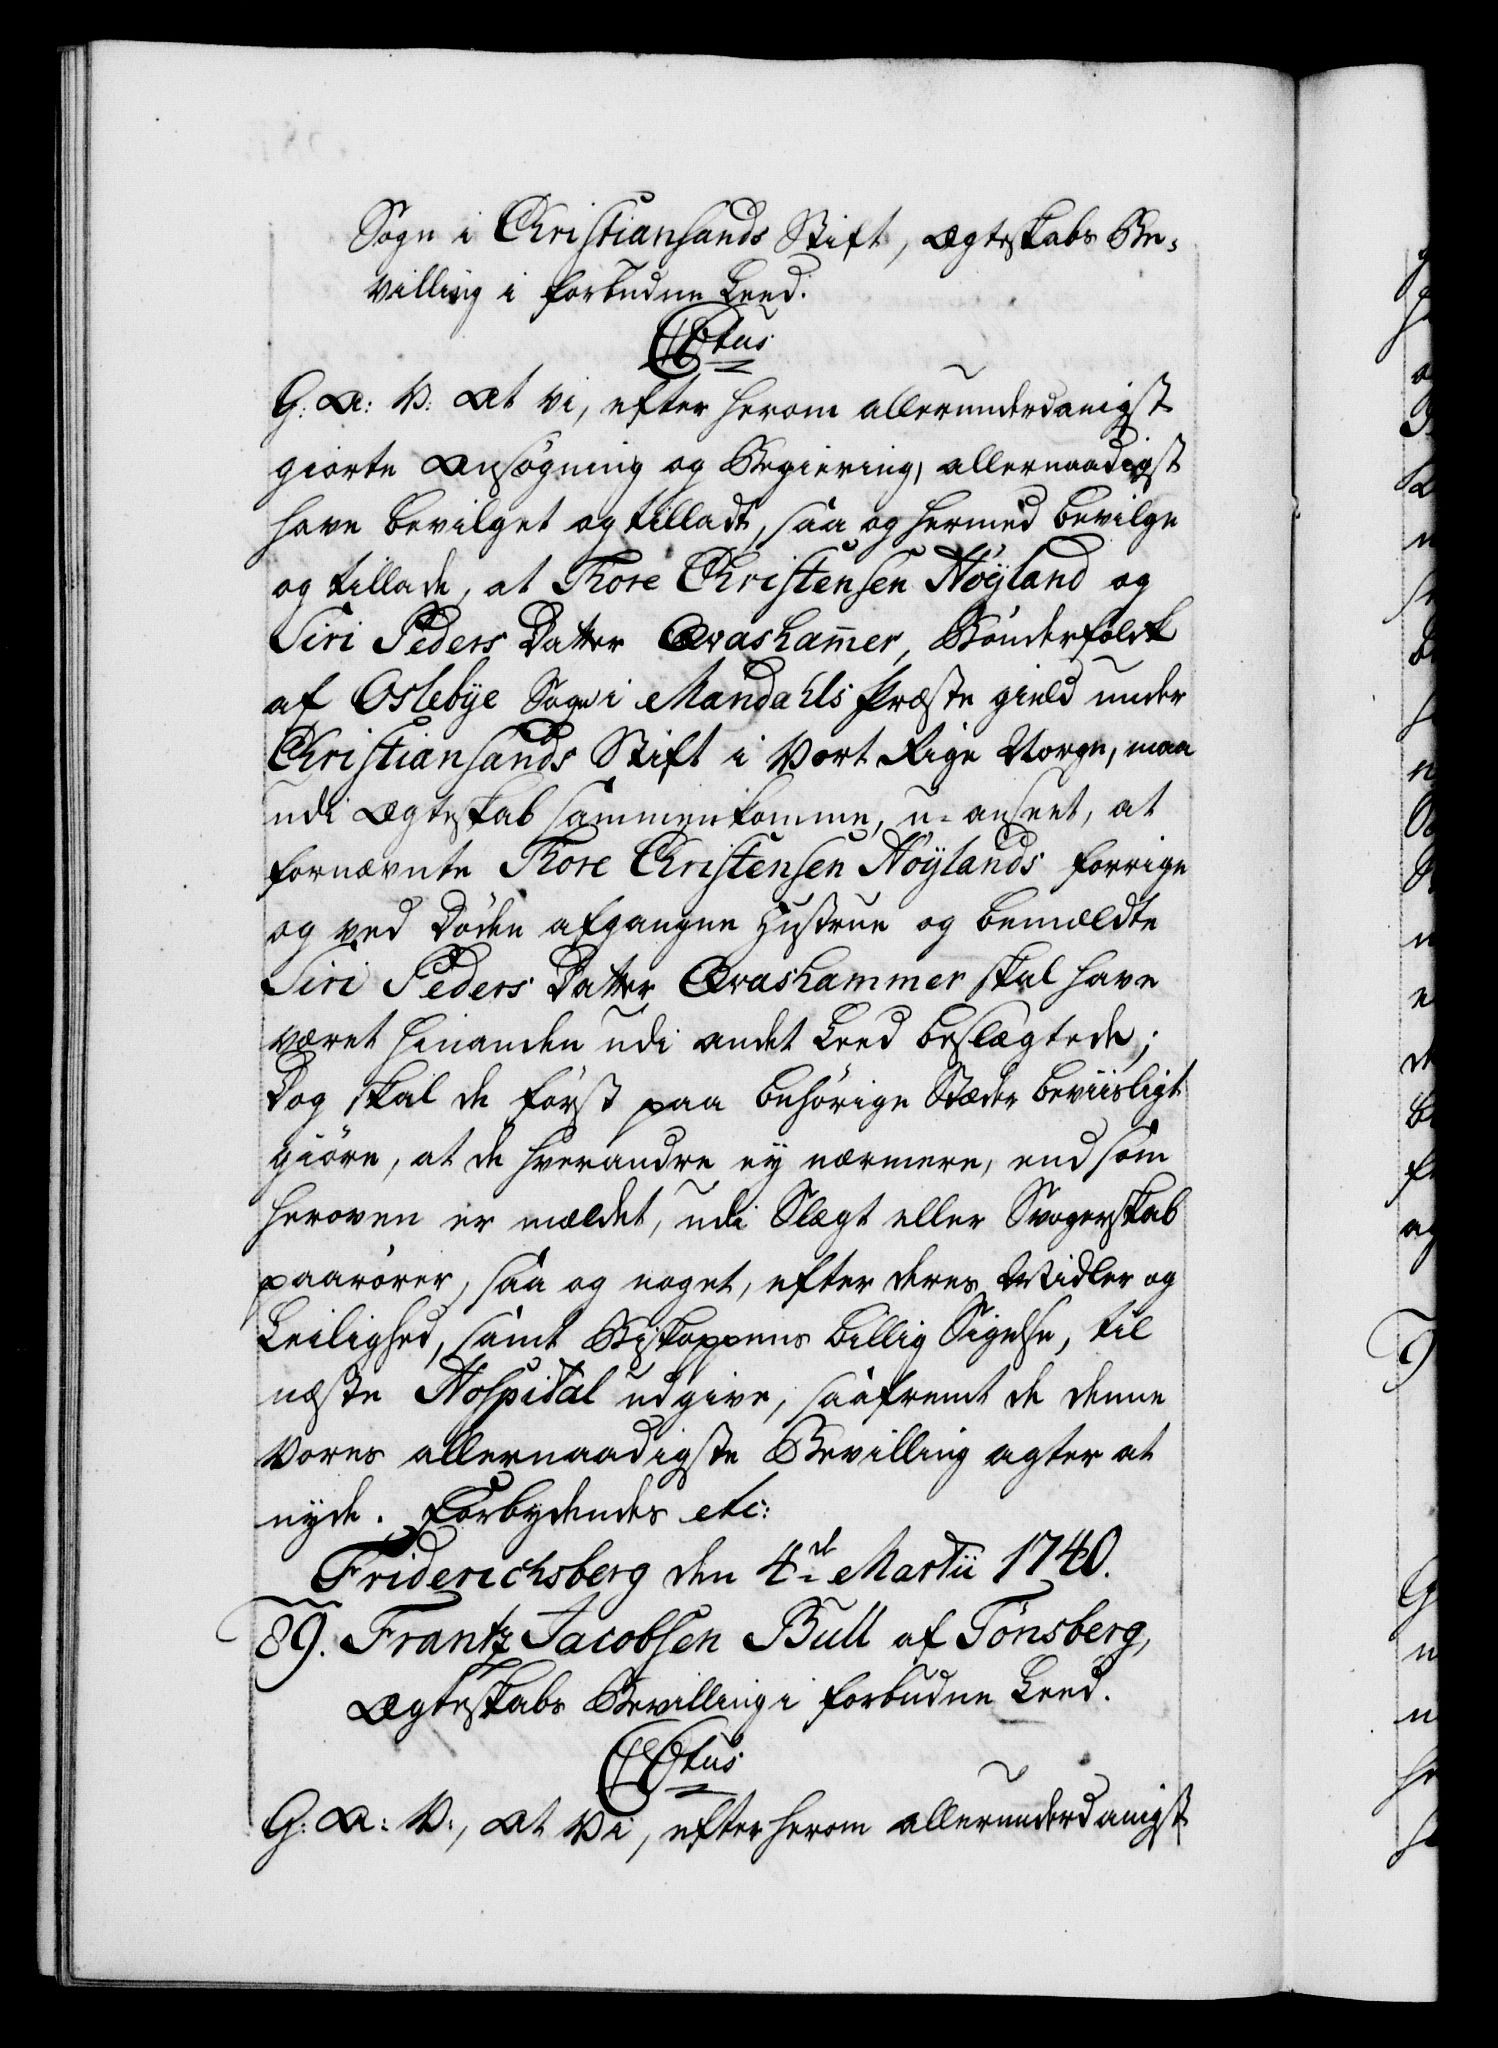 Sogn i Christiansands Stift, Ægteskabs Be-
villing i forbudne Leed.
C6tus
G: A: V: At vi, efter herom allerunderdanigst
giorte Ansøgning og Begiering, allernaadigst
have bevilget og tilladt, saa og hermed bevilge
og tillade, at Thore Christensen Höyland og
Siri Peders Datter Qvasham̄er, Bönderfolck
af Oslebÿe Sogn i Mandahls Præste gield under
Christiansands Stift i Vort Rige Norge, maa
udi Ægteskab sammenkomme, u-anseet, at
fornævnte Thore Christensen Höylands forrige
og ved Døden afgangne Hustrue og bemældte
Siri Peders Datter Qvashammer skal have
været hinanden udi andet Leed beslægtede;
Dog skal de först paa behörige Stæder beviisligt
giöre, at de hverandre ey nærmere, end som
heroven er mældet, udi Slægt eller Svogerskab
paarörer, saa og noget, efter deres Midler og
Leilighed, samt Biskoppens billig Sigelse, til
næste Hospital udgive, saafremt de denne
Vores allernaadigste Bevilling agter at
nyde. Forbydendes etc:
Friderichsberg den 4de Martii 1740.
89. Frantz Jacobsen Bull af Tönsberg,
Ægteskabs Bevilling i forbudne Leed.
C6tus
G: A: V:, At Vi, efter herom allerunderdanigst